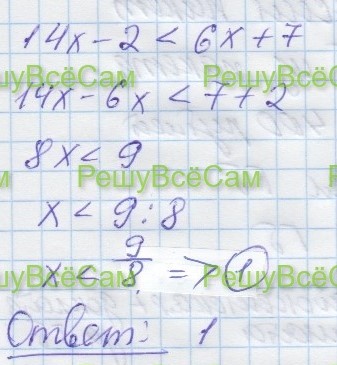 14x - 2 < 6x + 7
РешуВсёСам РешуВсёСам
14x - 6x < 7 + 2
8x < 9
м РешуВсёСам Р
x < 9 : 8
x < 9/8 => 1
РешуВсёСам РешуВсёСам
Ответ: 1